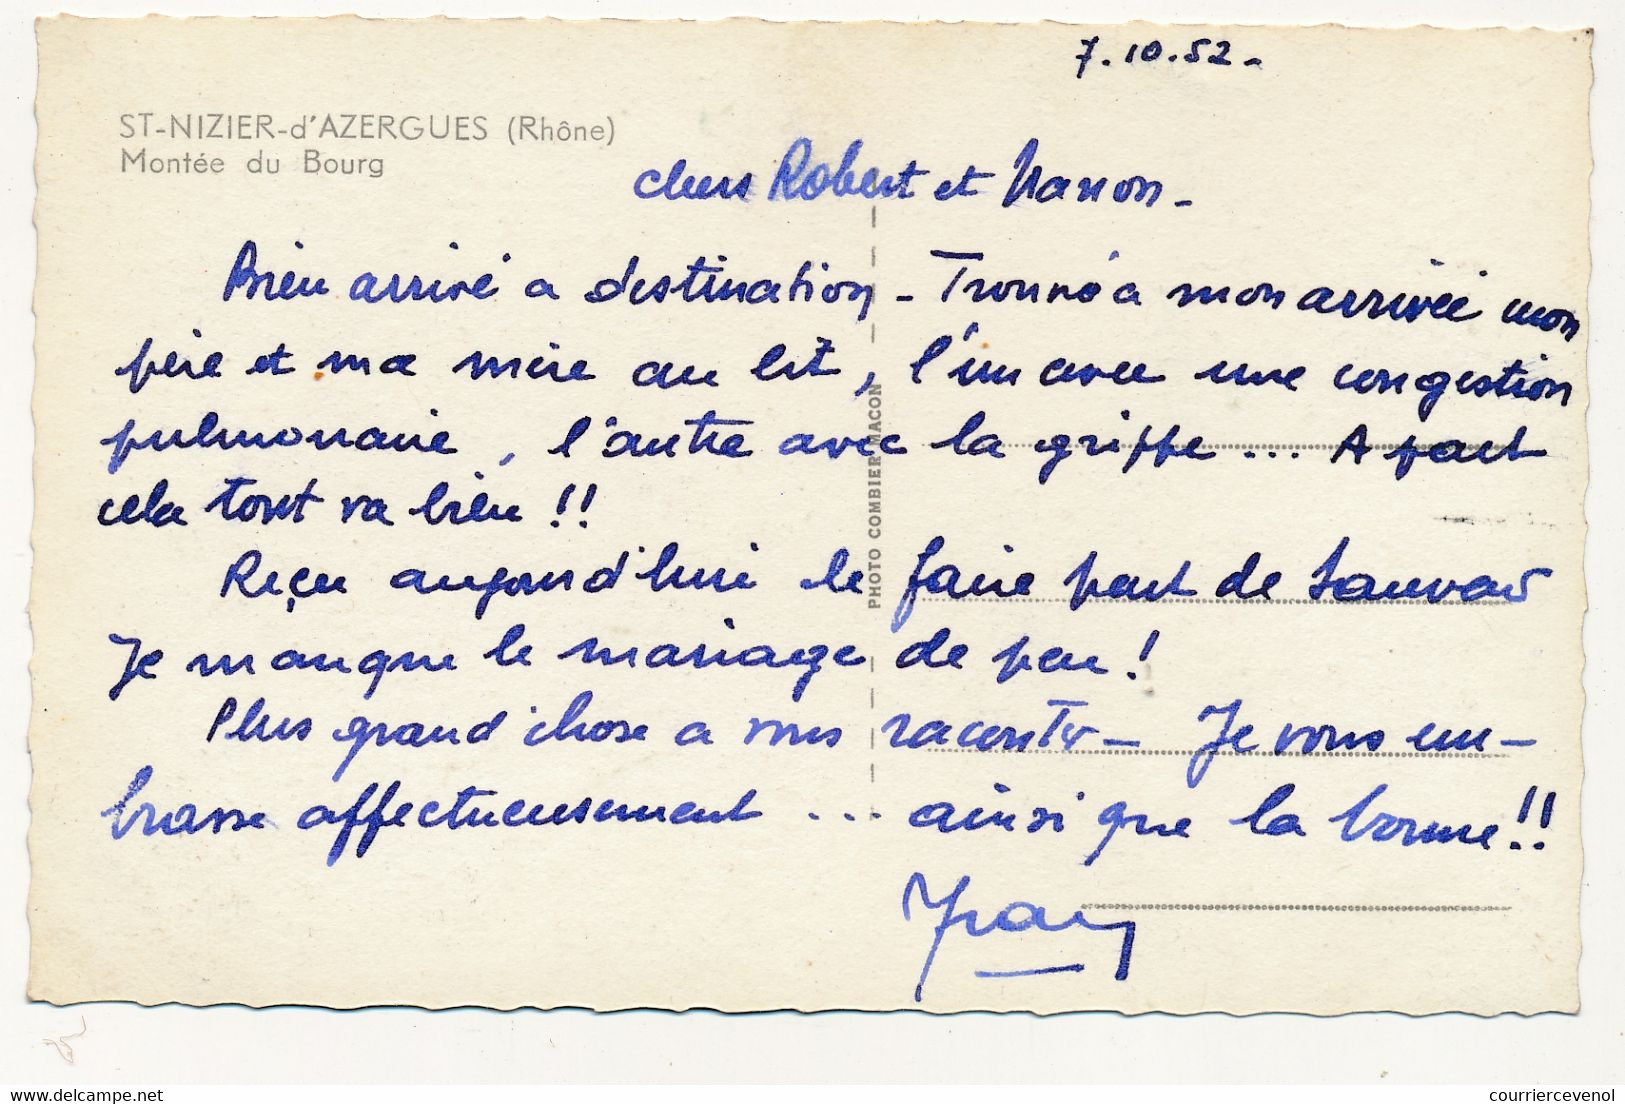 7.10.52-
ST-NIZIER-d'AZERGUES (Rhône)
Montée du Bourg
chers Robert et Manon-
Bien arrivé a destination - Trouvé a mon arrivée mon
père et ma mère au lit, l'un avec une congestion
pulmonaire, l'autre avec la grippe... A part
cela tout va bien !!
Reçu aujourd'hui le faire part de
Je manque le mariage de peu !
Plus grand chose a vous raconter - Je vous em-
brasse affectueusement ... ainsi que la bonne !!
PHOTO COMBIER MACON
delcampe.net
courriercevenol